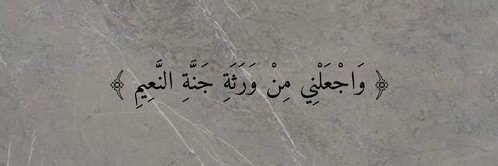 ﴿ وَاجْعَلْنِي مِنْ وَرَثَةِ جَنَّةِ النَّعِيمِ ﴾